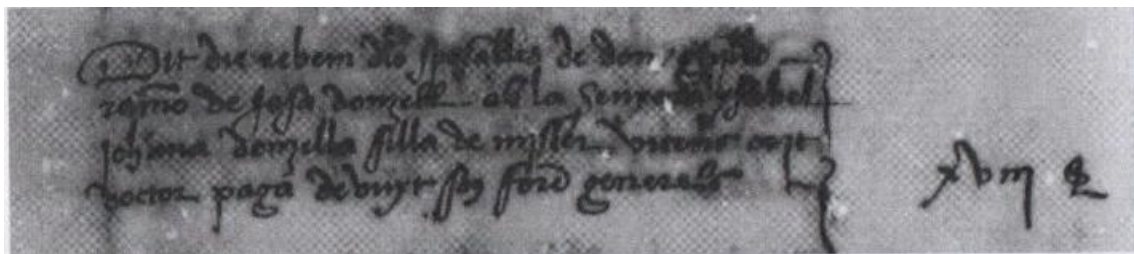 Dit die rebem dels sposallas de don
ramo de josa donzell ab la senyora ysabel
johana donzella filla de misser vicens
doctor paga de vuyt sous foren generals
xviij ß